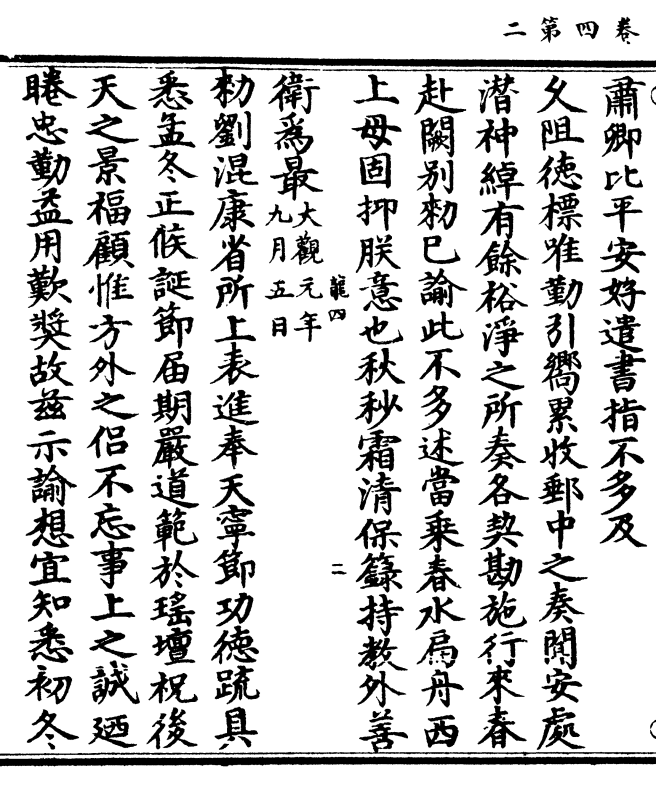 卷四第二
肅卿比平安好遣書指不多及
久阻德標唯勤引嚮累收郵中之奏聞安處
潛神綽有餘裕淨之所奏各契勘施行來春
赴闕別勑已諭此不多述當乘春水扁舟西
上毋固抑朕意也秋杪霜清保籙持教外善
衛為最大觀元年九月五日
龍四
二
勑劉混康省所上表進奉天寧節功德疏具
悉孟冬正候誕節届期嚴道範於瑤壇祝後
天之景福顧惟方外之侣不忘事上之誠迺
睠忠勤益用歎奬故兹示諭想宜知悉初冬